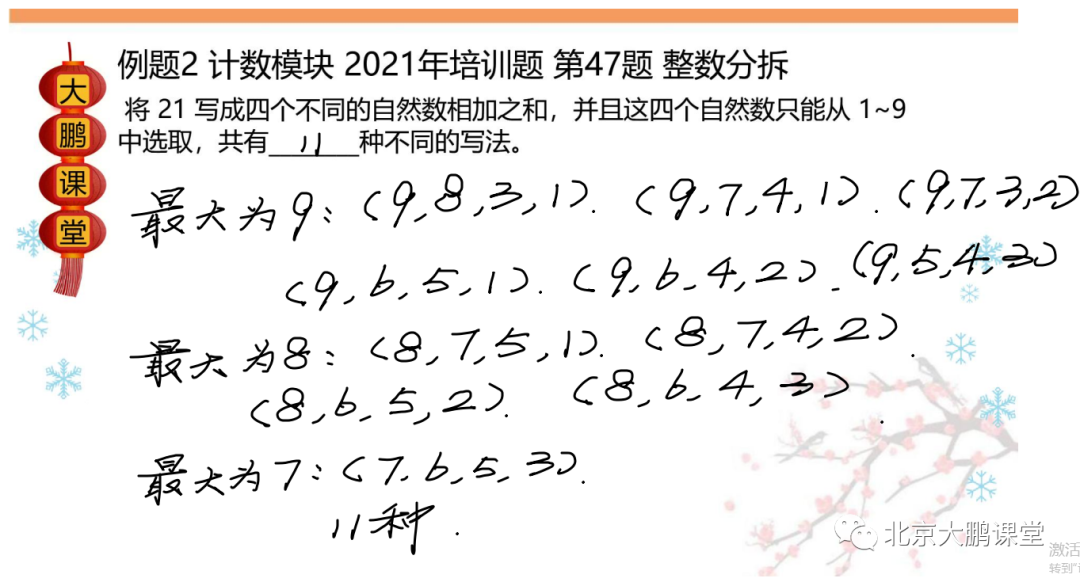 大鹏课堂
例题2 计数模块 2021年培训题 第47题 整数分拆
将 21 写成四个不同的自然数相加之和，并且这四个自然数只能从 1~9
中选取，共有 11 种不同的写法。
最大为9：(9,8,3,1). (9,7,4,1). (9,7,3,2)
(9,6,5,1). (9,6,4,2). (9,5,4,3)
最大为8：(8,7,5,1). (8,7,4,2).
(8,6,5,2). (8,6,4,3).
最大为7：(7,6,5,3).
11种.
北京大鹏课堂
激活
转到"